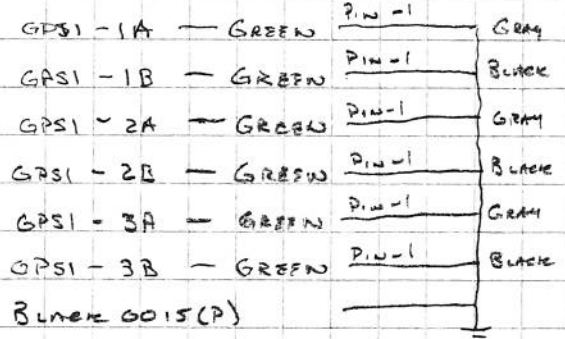 GPS1 - 1A - GREEN PIN-1 GRAY
GPS1 - 1B - GREEN PIN-1 BLACK
GPS1 - 2A - GREEN PIN-1 GRAY
GPS1 - 2B - GREEN PIN-1 BLACK
GPS1 - 3A - GREEN PIN-1 GRAY
GPS1 - 3B - GREEN PIN-1 BLACK
BLACK GO15(P)